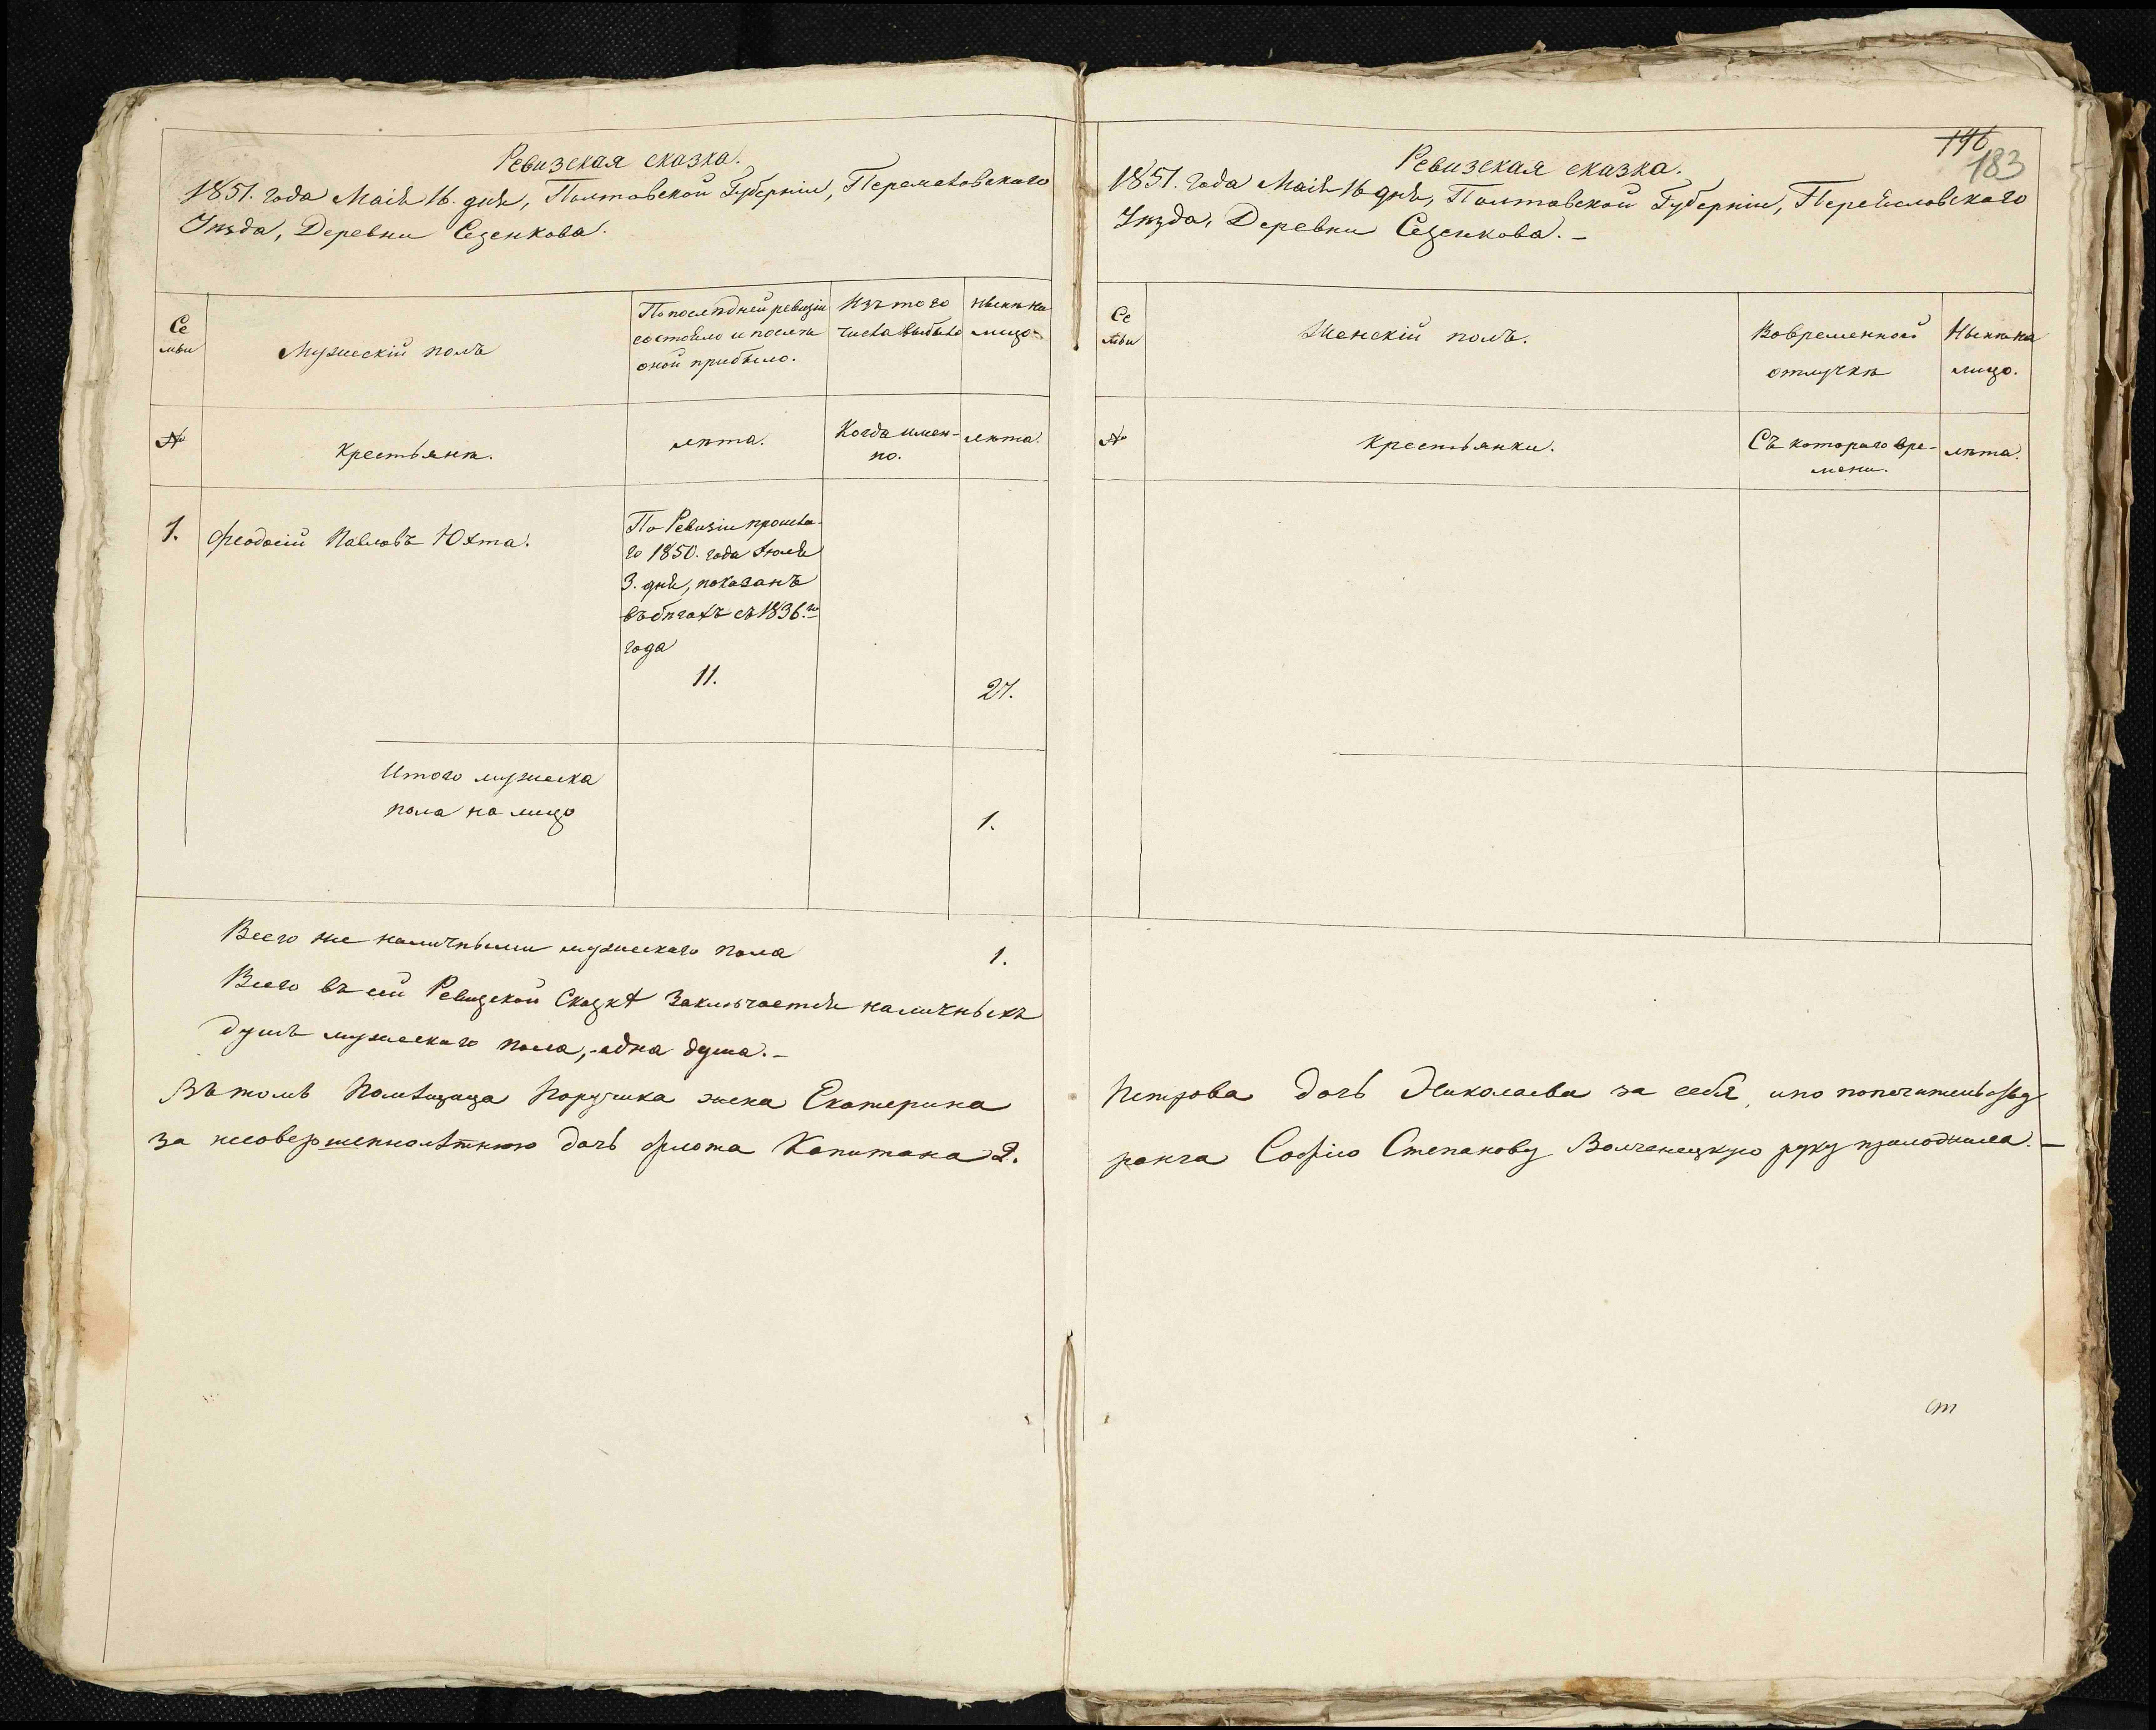 Ревизская сказка.
1851. года Маія 16. дня, Полтавской Губерніи, Переяславскаго
Уѣзда, Деревни Сезенкова.
Се
мьи
Мужескій полъ
По послѣдней ревизіи
состояло и послѣ
оной прибыло.
Изъ того
числа выбыло
Нынѣ на
лицо
№
Крестьянѣ.
лѣта.
Когда имен-
но.
лѣта.
1.
Феодосій Павловъ Юхта.
По Ревизіи прошла-
го 1850. года Іюля
3. дня, показанъ
въ бѣгахъ съ 1836.го
года
11.
27.
Итого мужеска
пола на лицо
1.
Всего же наличными мужескаго пола 1.
Всего въ сей Ревизской Сказкѣ Заключается наличныхъ
душъ мужескаго пола, одна душа.-
Въ томъ Помѣщица Поручика жена Екатерина
за несовершеннолѣтнюю дочь флота Капитана 2.
196
183
Ревизская сказка.
1851. года Маія 16 дня, Полтавской Губерніи, Переяславскаго
Уѣзда, Деревни Сезенкова.-
Се
мьи
Женскій полъ.
Вовременной
отлучкѣ
Нынѣ на
лицо.
№
Крестьянки.
Съ котораго вре-
мени.
лѣта.
Петрова дочь Николаева за себя, и по попечительству
ранга Софію Степанову Волченецкую руку приложила.-